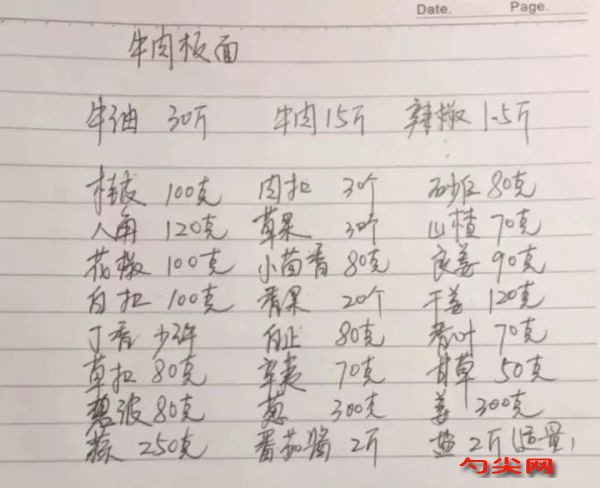 Date. Page.
牛肉板面
牛油 30斤 牛肉15斤 辣椒 1.5斤
桂皮 100克 肉扣 3个 砂仁 80克
八角 120克 草果 30个 山楂 70克
花椒 100克 小茴香 80克 良姜 90克
白扣 100克 香果 20个 干姜 120克
丁香 少许 白止 80克 香叶 70克
草扣 80克 辛夷 70克 甘草 50克
荜波 80克 葱 300克 姜 300克
蒜 250克 番茄酱 2斤 盐 2斤(适量)
勺尖网